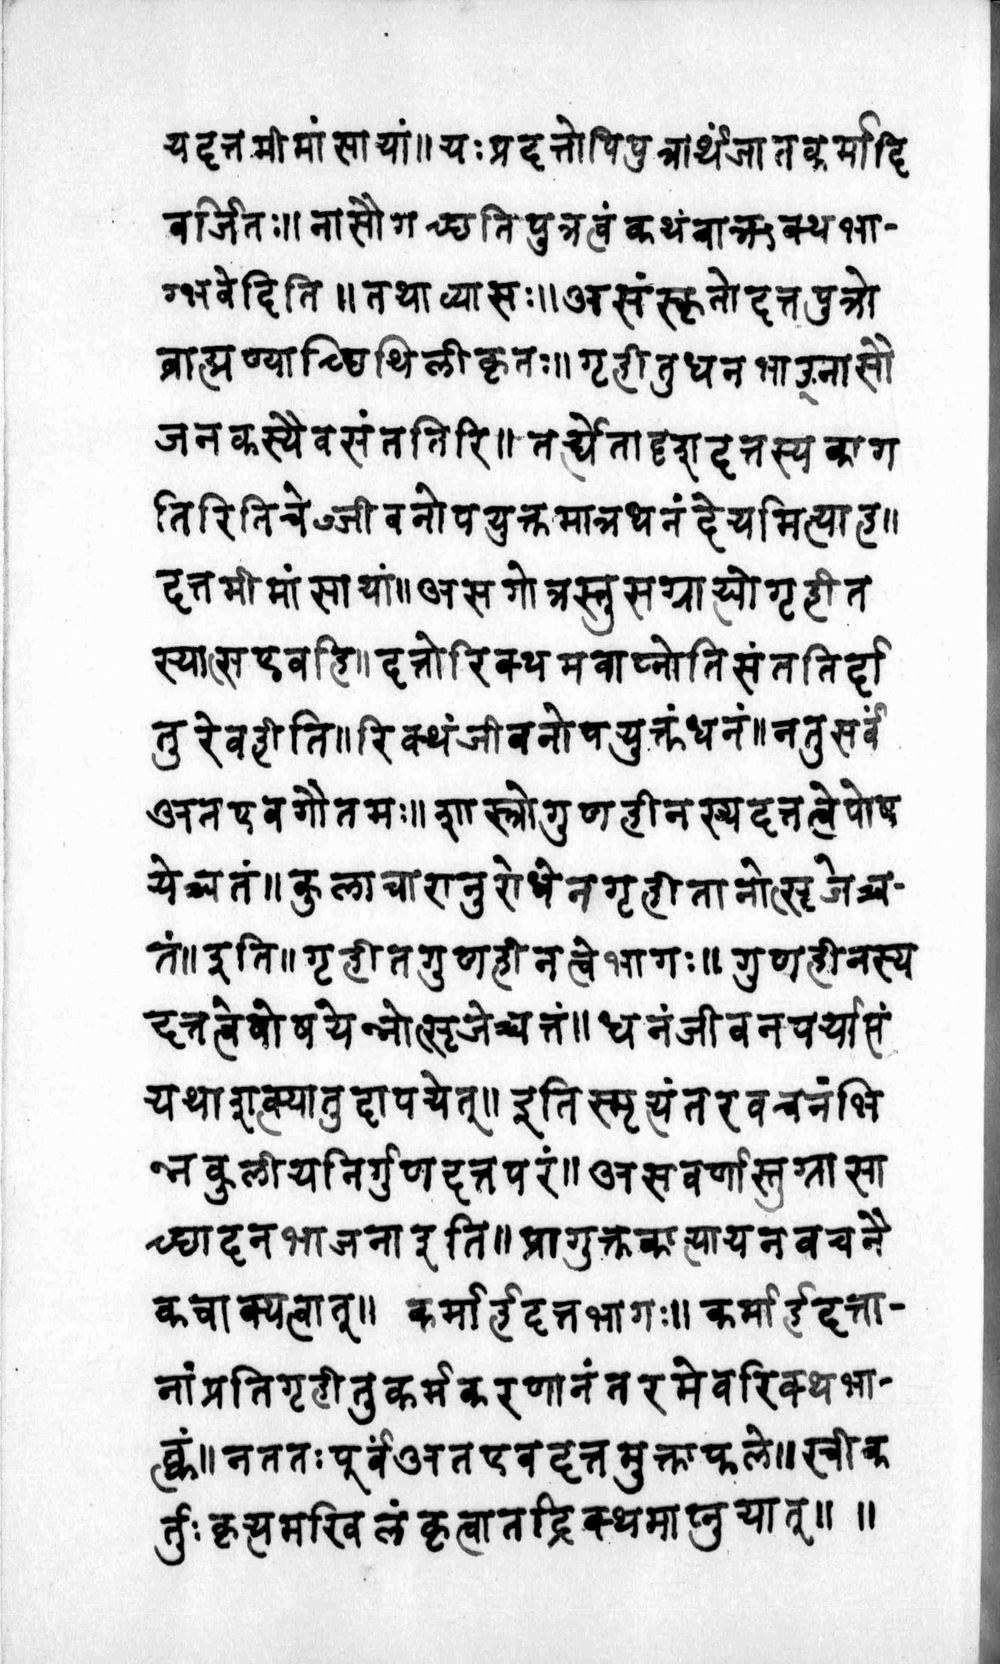 यदत्तमीमांसायां॥ यः प्रदत्तोपि पुत्रार्थं जातकर्मादि
वर्जितः॥ नासौ गच्छति पुत्रत्वं कथं वा ऋक्थभा-
ग्भवेदिति॥ तथा व्यासः॥ असंस्कृतो दत्तपुत्रो
ब्राह्मण्याच्छिथिलीकृतः॥ गृहीतुधनभाङ्नासौ
जनकस्यैव संततिरि॥ तर्ह्येतादृशदत्तस्य का ग
तिरिति चेज्जीवनोपयुक्तमात्रधनं देयमित्याह॥
दत्तमीमांसायां॥ असगोत्रस्तु सग्राह्यो गृहीत
स्यास एव हि॥ दत्तो रिक्थमवाप्नोति संततिर्दा
तुरेव हीति॥ रिक्थं जीवनोपयुक्तं धनं॥ न तु सर्वं
अत एव गौतमः॥ शास्त्रो गुणहीनस्य दत्तत्वे पोष
येच्च तं॥ कुलाचारानुरोधेन गृहीता नोत्सृजेच्च-
तं॥ इति॥ गृहीतगुणहीनत्वे भागः॥ गुणहीनस्य
दत्तत्वे पोषयेन्नोत्सृजेच्च तं॥ धनं जीवनपर्याप्तं
यथाशक्त्या तु दापयेत्॥ इति स्मृत्यंतरवचनं भि
न्नकुलीयनिर्गुणदत्तपरं॥ असवर्णास्तु ग्रासा
च्छादनभाजना इति॥ प्रागुक्तकात्यायनवचनै
कवाक्यत्वात्॥ कर्मार्हदत्तभागः॥ कर्मार्हदत्ता-
नां प्रतिगृहीतुकर्मकरणानंतरमेव रिक्थभा-
क्त्वं॥ न ततः पूर्वं अत एव दत्तमुक्ताफले॥ स्वीक
र्तुः कृत्यमखिलं कृत्वा तद्रिक्थमाप्नुयात्॥ ॥